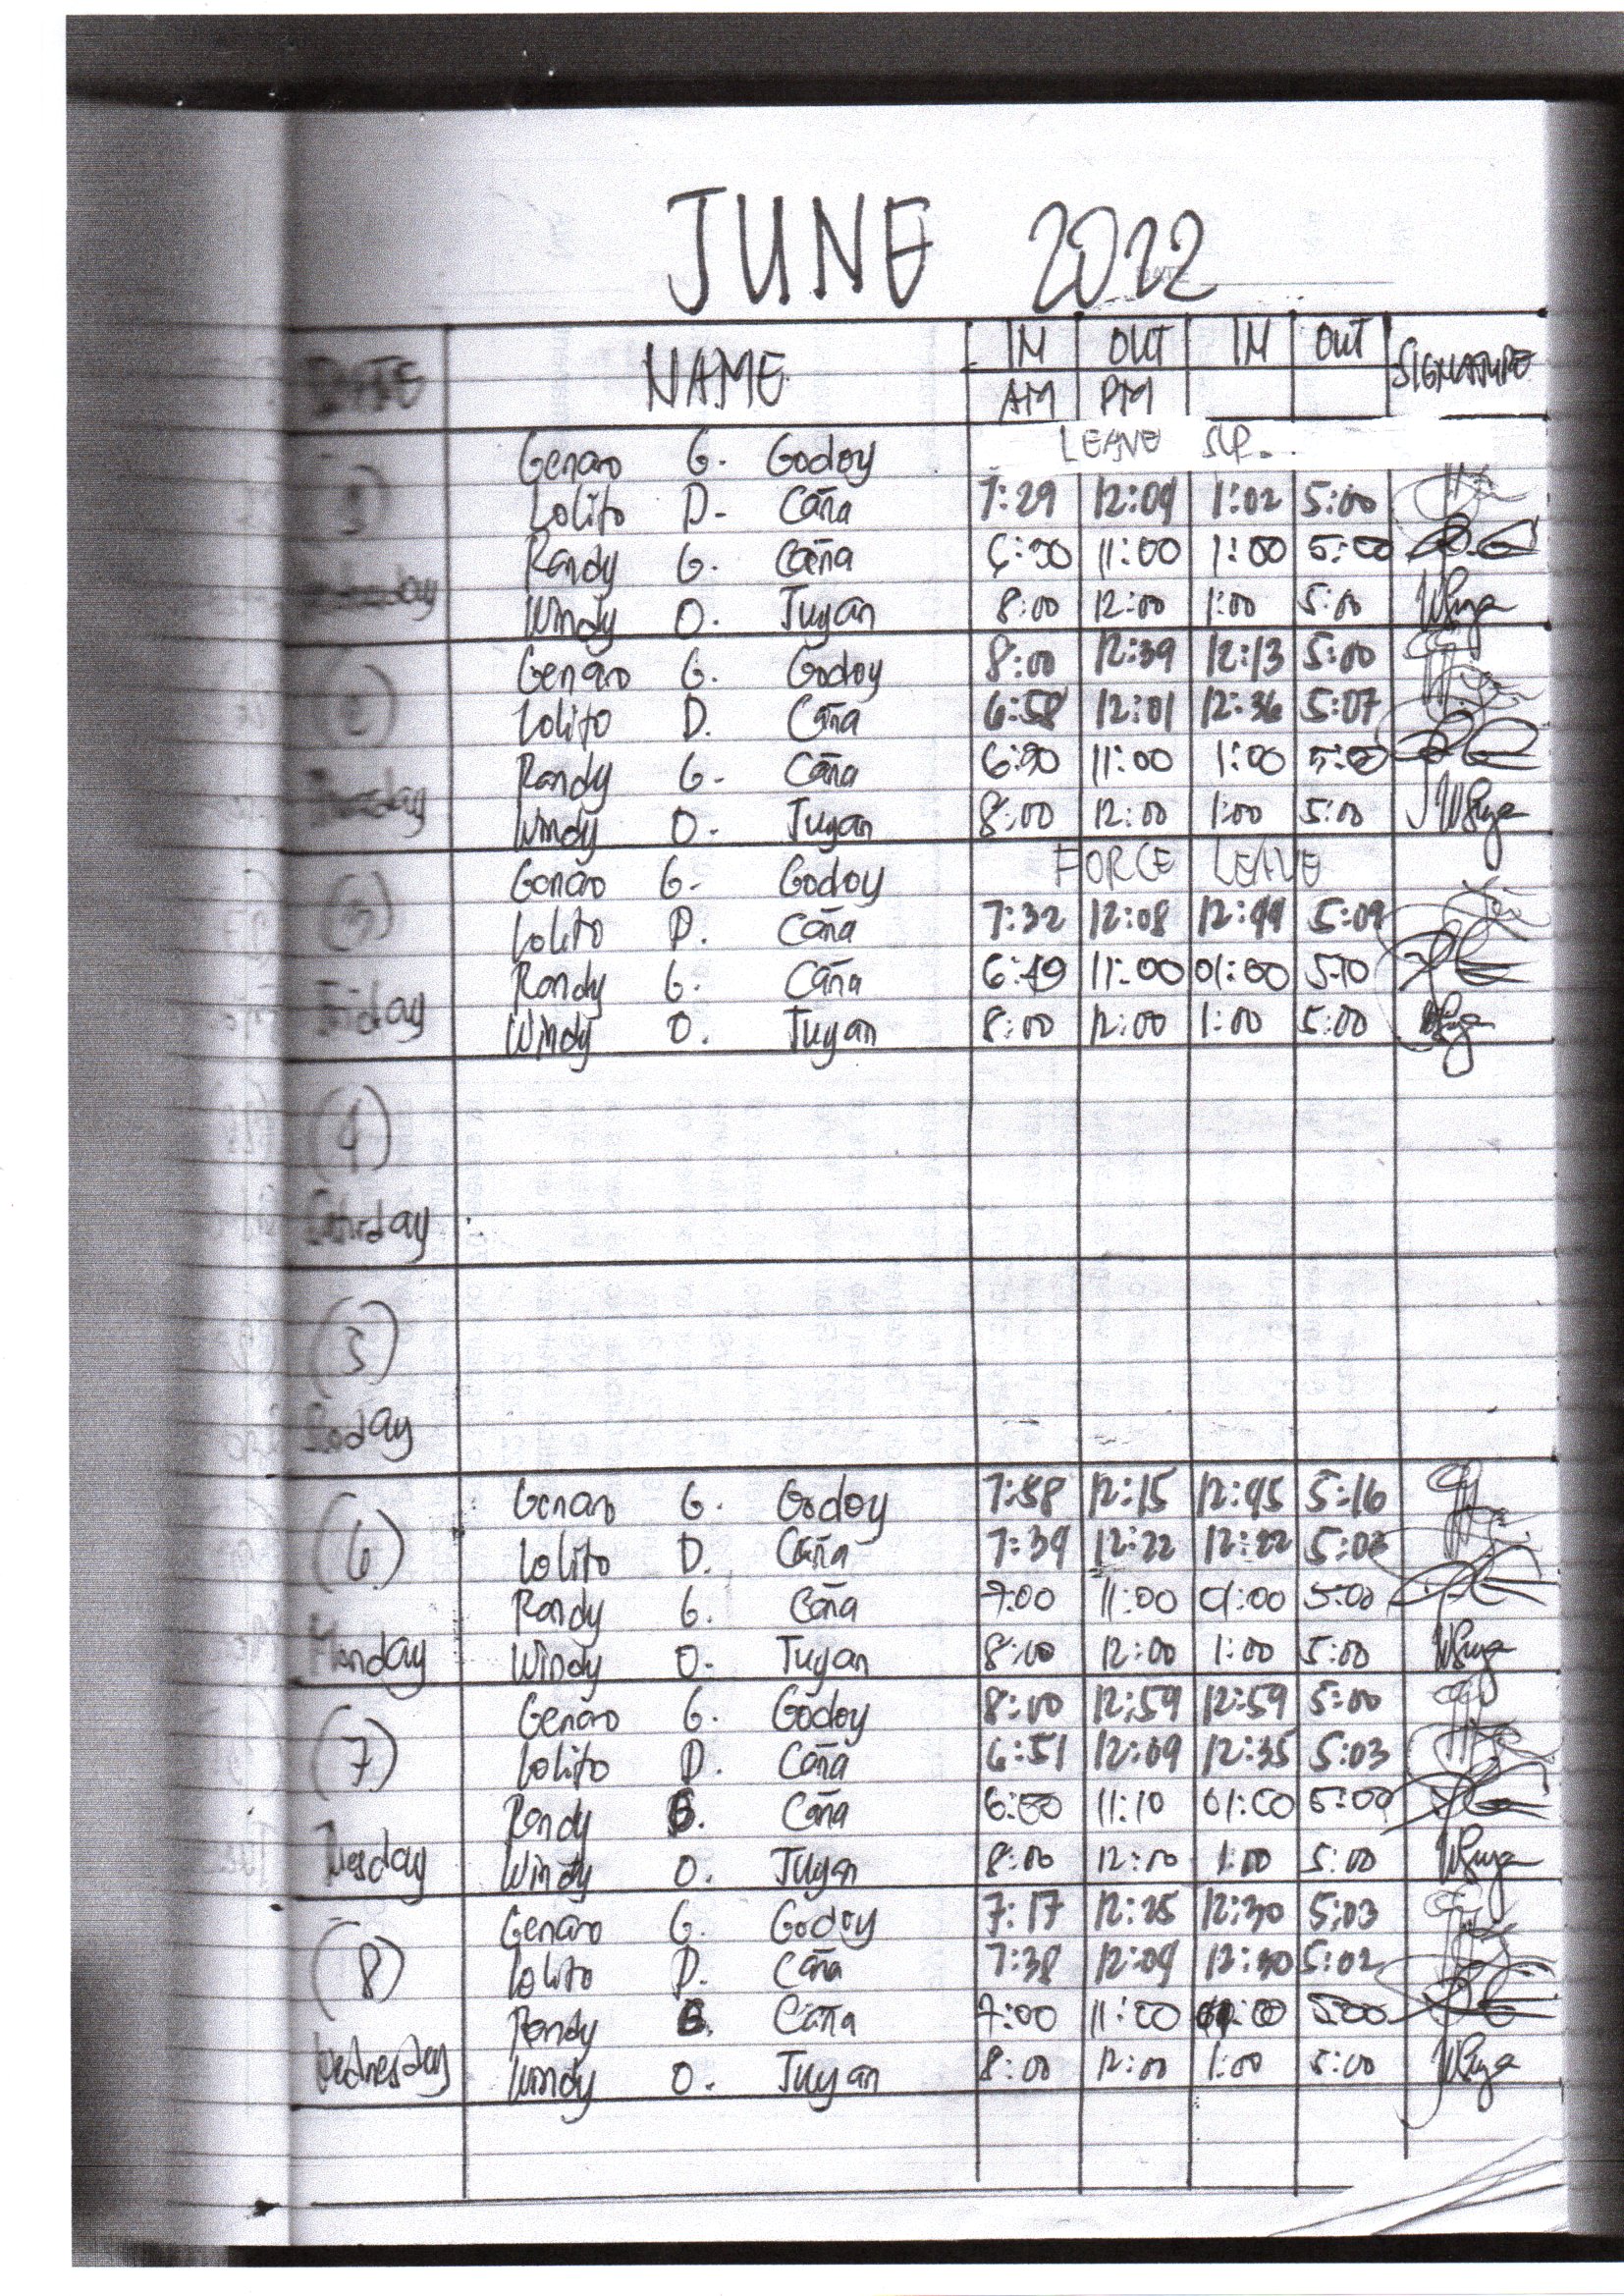 JUNE 2022
DATE NAME IN OUT IN OUT SIGNATURE
AM PM
Genaro G. Godoy LEAVE SLP.
(1) Lolito D. Caña 7:29 12:04 1:02 5:00
Randy G. Caña 6:30 11:00 1:00 5:00
Windy O. Tuyan 8:00 12:00 1:00 5:00
Genaro G. Godoy 8:00 12:39 12:13 5:00
(2) Lolito D. Caña 6:58 12:01 12:36 5:07
Randy G. Caña 11:00 1:00 5:00
Thursday Windy O. Tuyan 8:00 12:00 1:00 5:00
Genaro G. Godoy FORCE LEAVE
(3) Lolito D. Caña 7:32 12:08 12:44 5:09
Randy G. Caña 6:49 11:00 01:00 5:10
Friday Windy O. Tuyan 8:00 12:00 1:00 5:00
(4)
Saturday
(5)
Genaro G. Godoy 7:58 12:15 12:45 5:16
(6) Lolito D. Caña 7:39 12:22 12:22 5:03
Randy G. Caña 7:00 11:00 01:00 5:00
Monday Windy O. Tuyan 8:00 12:00 1:00 5:00
Genaro G. Godoy 8:00 12:59 12:59 5:00
(7) Lolito D. Caña 6:51 12:09 12:35 5:03
Randy G. Caña 6:50 11:10 01:00 5:00
Tuesday Windy O. Tuyan 8:00 12:00 1:00 5:00
Genaro G. Godoy 7:17 12:25 12:30 5:03
(8) Lolito D. Caña 7:38 12:04 12:30 5:02
Randy G. Caña 7:00 11:00 5:00
Wednesday Windy O. Tuyan 8:00 12:00 1:00 5:00